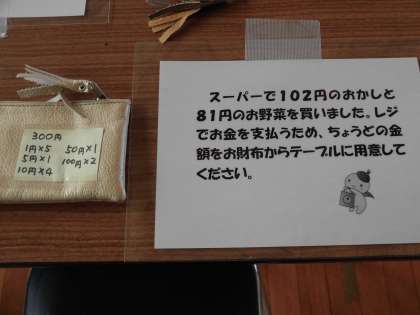 300円
1円×5 50円×1
5円×1 100円×2
10円×4
スーパーで102円のおかしと
81円のお野菜を買いました。レジ
でお金を支払うため、ちょうどの金
額をお財布からテーブルに用意して
ください。